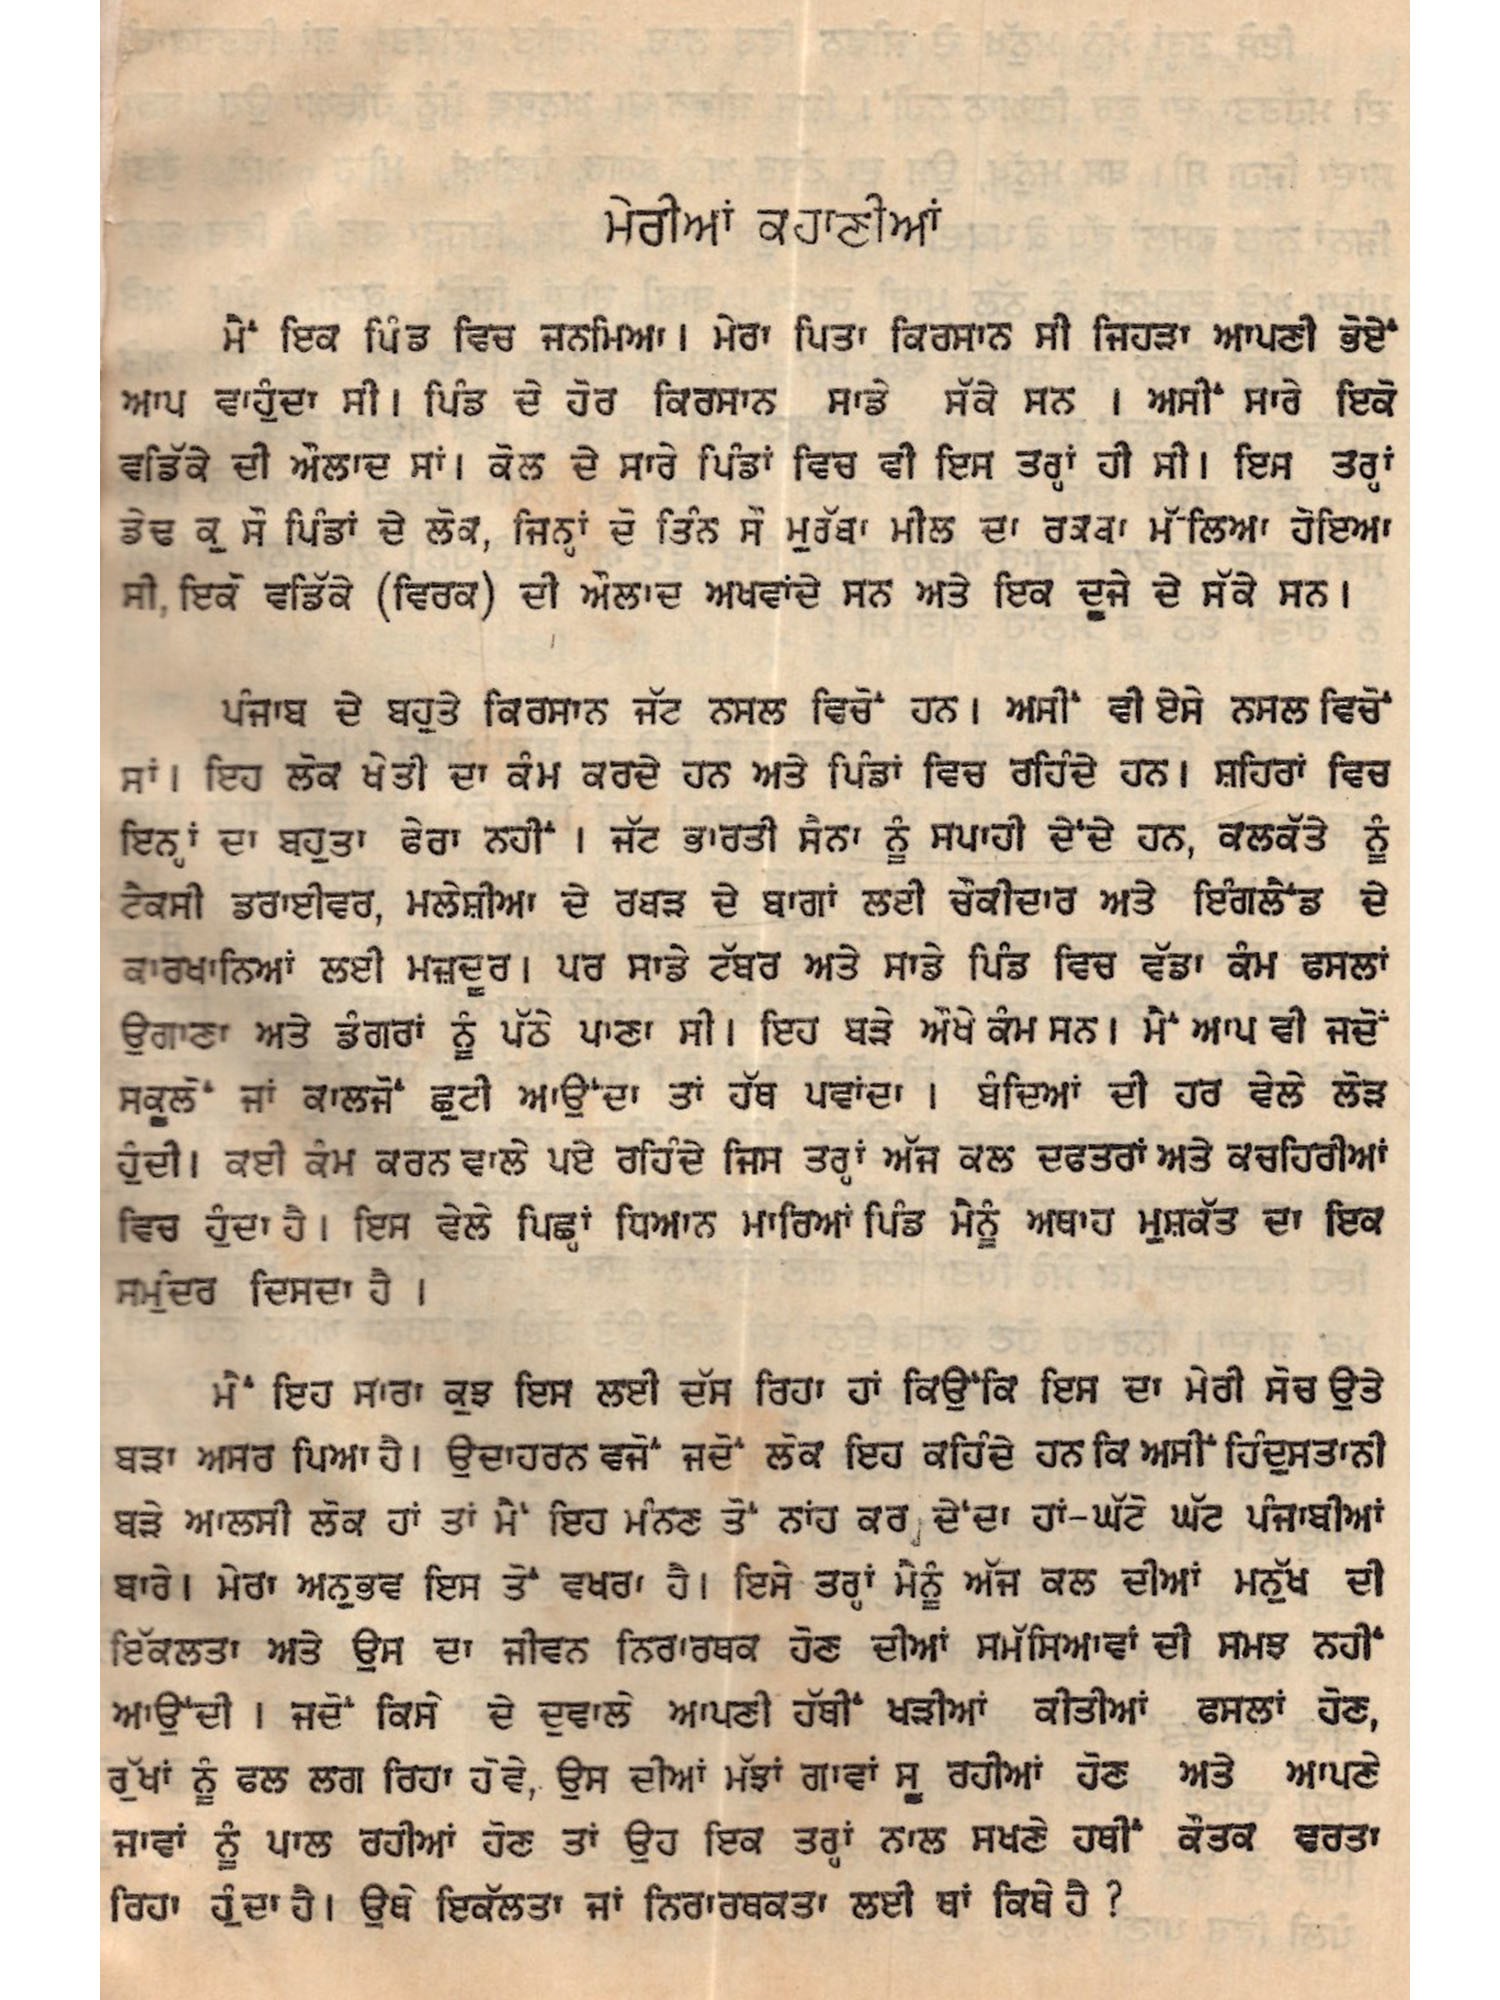 ਮੇਰੀਆਂ ਕਹਾਣੀਆਂ
ਮੈਂ ਇਕ ਪਿੰਡ ਵਿਚ ਜਨਮਿਆ। ਮੇਰਾ ਪਿਤਾ ਕਿਰਸਾਨ ਸੀ ਜਿਹੜਾ ਆਪਣੀ ਭੋਏਂ
ਆਪ ਵਾਹੁੰਦਾ ਸੀ। ਪਿੰਡ ਦੇ ਹੋਰ ਕਿਰਸਾਨ ਸਾਡੇ ਸੱਕੇ ਸਨ । ਅਸੀਂ ਸਾਰੇ ਇਕੋ
ਵਡਿੱਕੇ ਦੀ ਔਲਾਦ ਸਾਂ। ਕੋਲ ਦੇ ਸਾਰੇ ਪਿੰਡਾਂ ਵਿਚ ਵੀ ਇਸ ਤਰ੍ਹਾਂ ਹੀ ਸੀ। ਇਸ ਤਰ੍ਹਾਂ
ਡੇਢ ਕੁ ਸੌ ਪਿੰਡਾਂ ਦੇ ਲੋਕ, ਜਿਨ੍ਹਾਂ ਦੋ ਤਿੰਨ ਸੌ ਮੁਰੱਬਾ ਮੀਲ ਦਾ ਰਕਬਾ ਮੱਲਿਆ ਹੋਇਆ
ਸੀ, ਇਕੋ ਵਡਿੱਕੇ (ਵਿਰਕ) ਦੀ ਔਲਾਦ ਅਖਵਾਂਦੇ ਸਨ ਅਤੇ ਇਕ ਦੂਜੇ ਦੇ ਸੱਕੇ ਸਨ।
ਪੰਜਾਬ ਦੇ ਬਹੁਤੇ ਕਿਰਸਾਨ ਜੱਟ ਨਸਲ ਵਿਚੋਂ ਹਨ। ਅਸੀਂ ਵੀ ਏਸੇ ਨਸਲ ਵਿਚੋਂ
ਸਾਂ। ਇਹ ਲੋਕ ਖੇਤੀ ਦਾ ਕੰਮ ਕਰਦੇ ਹਨ ਅਤੇ ਪਿੰਡਾਂ ਵਿਚ ਰਹਿੰਦੇ ਹਨ। ਸ਼ਹਿਰਾਂ ਵਿਚ
ਇਨ੍ਹਾਂ ਦਾ ਬਹੁਤਾ ਫੇਰਾ ਨਹੀਂ । ਜੱਟ ਭਾਰਤੀ ਸੈਨਾ ਨੂੰ ਸਪਾਹੀ ਦੇਂਦੇ ਹਨ, ਕਲਕੱਤੇ ਨੂੰ
ਟੈਕਸੀ ਡਰਾਈਵਰ, ਮਲੇਸ਼ੀਆ ਦੇ ਰਬੜ ਦੇ ਬਾਗਾਂ ਲਈ ਚੌਕੀਦਾਰ ਅਤੇ ਇੰਗਲੈਂਡ ਦੇ
ਕਾਰਖਾਨਿਆਂ ਲਈ ਮਜ਼ਦੂਰ। ਪਰ ਸਾਡੇ ਟੱਬਰ ਅਤੇ ਸਾਡੇ ਪਿੰਡ ਵਿਚ ਵੱਡਾ ਕੰਮ ਫਸਲਾਂ
ਉਗਾਣਾ ਅਤੇ ਡੰਗਰਾਂ ਨੂੰ ਪੱਠੇ ਪਾਣਾ ਸੀ। ਇਹ ਬੜੇ ਔਖੇ ਕੰਮ ਸਨ। ਮੈਂ ਆਪ ਵੀ ਜਦੋਂ
ਸਕੂਲੋਂ ਜਾਂ ਕਾਲਜੋਂ ਛੁਟੀ ਆਉਂਦਾ ਤਾਂ ਹੱਥ ਪਵਾਂਦਾ । ਬੰਦਿਆਂ ਦੀ ਹਰ ਵੇਲੇ ਲੋੜ
ਹੁੰਦੀ। ਕਈ ਕੰਮ ਕਰਨ ਵਾਲੇ ਪਏ ਰਹਿੰਦੇ ਜਿਸ ਤਰ੍ਹਾਂ ਅੱਜ ਕਲ ਦਫਤਰਾਂ ਅਤੇ ਕਚਹਿਰੀਆਂ
ਵਿਚ ਹੁੰਦਾ ਹੈ। ਇਸ ਵੇਲੇ ਪਿਛ੍ਹਾਂ ਧਿਆਨ ਮਾਰਿਆਂ ਪਿੰਡ ਮੈਨੂੰ ਅਥਾਹ ਮੁਸ਼ਕੱਤ ਦਾ ਇਕ
ਸਮੁੰਦਰ ਦਿਸਦਾ ਹੈ ।
ਮੈਂ ਇਹ ਸਾਰਾ ਕੁਝ ਇਸ ਲਈ ਦੱਸ ਰਿਹਾ ਹਾਂ ਕਿਉਂਕਿ ਇਸ ਦਾ ਮੇਰੀ ਸੋਚ ਉਤੇ
ਬੜਾ ਅਸਰ ਪਿਆ ਹੈ। ਉਦਾਹਰਨ ਵਜੋਂ ਜਦੋਂ ਲੋਕ ਇਹ ਕਹਿੰਦੇ ਹਨ ਕਿ ਅਸੀਂ ਹਿੰਦੁਸਤਾਨੀ
ਬੜੇ ਆਲਸੀ ਲੋਕ ਹਾਂ ਤਾਂ ਮੈਂ ਇਹ ਮੰਨਣ ਤੋਂ ਨਾਂਹ ਕਰ ਦੇਂਦਾ ਹਾਂ-ਘੱਟੋ ਘੱਟ ਪੰਜਾਬੀਆਂ
ਬਾਰੇ। ਮੇਰਾ ਅਨੁਭਵ ਇਸ ਤੋਂ ਵਖਰਾ ਹੈ। ਇਸੇ ਤਰ੍ਹਾਂ ਮੈਨੂੰ ਅੱਜ ਕਲ ਦੀਆਂ ਮਨੁੱਖ ਦੀ
ਇੱਕਲਤਾ ਅਤੇ ਉਸ ਦਾ ਜੀਵਨ ਨਿਰਾਰਥਕ ਹੋਣ ਦੀਆਂ ਸਮੱਸਿਆਵਾਂ ਦੀ ਸਮਝ ਨਹੀਂ
ਆਉਂਦੀ । ਜਦੋਂ ਕਿਸੇ ਦੇ ਦੁਵਾਲੇ ਆਪਣੀ ਹੱਥੀਂ ਖੜੀਆਂ ਕੀਤੀਆਂ ਫਸਲਾਂ ਹੋਣ,
ਰੁੱਖਾਂ ਨੂੰ ਫਲ ਲਗ ਰਿਹਾ ਹੋਵੇ, ਉਸ ਦੀਆਂ ਮੱਝਾਂ ਗਾਵਾਂ ਸੂ ਰਹੀਆਂ ਹੋਣ ਅਤੇ ਆਪਣੇ
ਜਾਵਾਂ ਨੂੰ ਪਾਲ ਰਹੀਆਂ ਹੋਣ ਤਾਂ ਉਹ ਇਕ ਤਰ੍ਹਾਂ ਨਾਲ ਸਖਣੇ ਹਥੀਂ ਕੌਤਕ ਵਰਤਾ
ਰਿਹਾ ਹੁੰਦਾ ਹੈ। ਉਥੇ ਇਕੱਲਤਾ ਜਾਂ ਨਿਰਾਰਥਕਤਾ ਲਈ ਥਾਂ ਕਿਥੇ ਹੈ ?